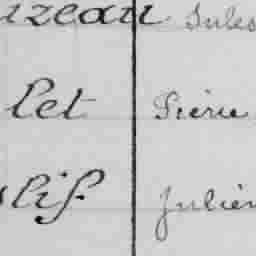 izeau Jules
let Pierre
lif Julien